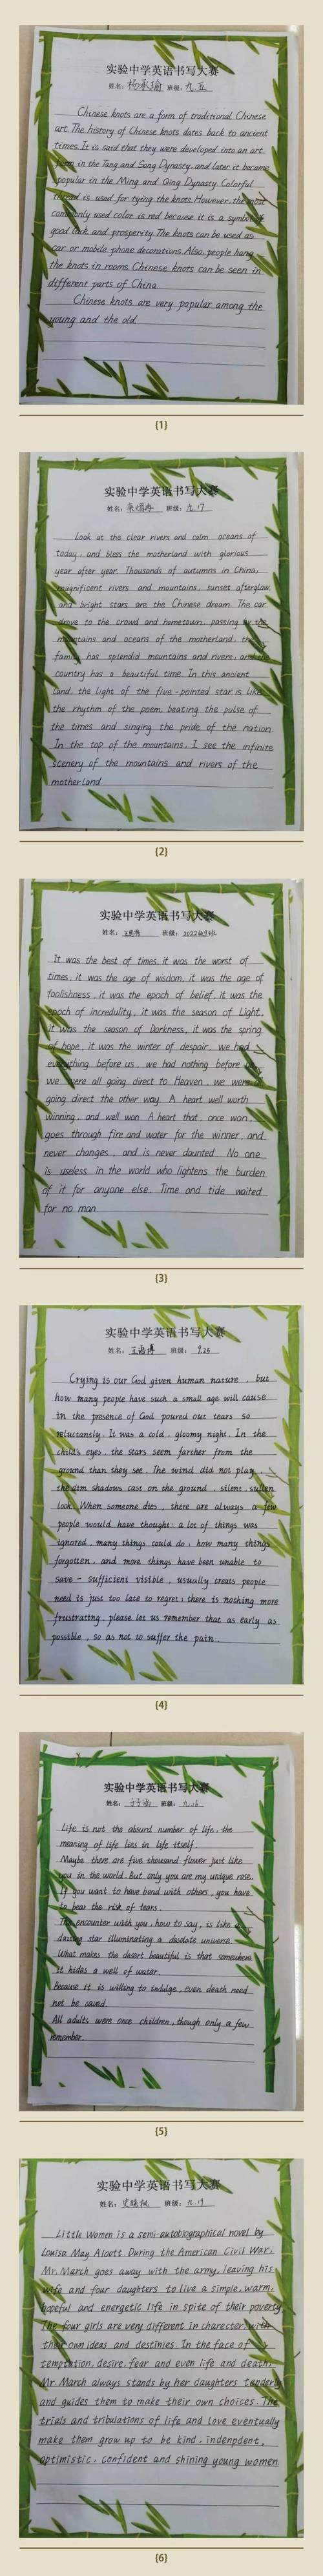 实验中学英语书写大赛
姓名：杨承瑜 班级：九.五
Chinese knots are a form of traditional Chinese
art. The history of Chinese knots dates back to ancient
times. It is said that they were developed into an art
form in the Tang and Song Dynasty, and later it became
popular in the Ming and Qing Dynasty. Colorful
thread is used for tying the knots. However, the most
commonly used color is red because it is a symbol of
good luck and prosperity. The knots can be used as
car or mobile phone decorations. Also, people hang
the knots in rooms. Chinese knots can be seen in
different parts of China.
Chinese knots are very popular among the
young and the old.
{1}
实验中学英语书写大赛
姓名： 班级：九.17
Look at the clear rivers and calm oceans of
today, and bless the motherland with glorious
year after year. Thousands of autumns in China,
magnificent rivers and mountains, sunset afterglow
and bright stars are the Chinese dream. The car
drove to the crowd and hometown, passing by the
mountains and oceans of the motherland,
family has splendid mountains and rivers, and the
country has a beautiful time. In this ancient
land, the light of the five-pointed star is like
the rhythm of the poem, beating the pulse of
the times and singing the pride of the nation.
In the top of the mountains, I see the infinite
scenery of the mountains and rivers of the
motherland.
{2}
实验中学英语书写大赛
姓名： 班级：2022级9班
It was the best of times, it was the worst of
times, it was the age of wisdom, it was the age of
foolishness, it was the epoch of belief, it was the
epoch of incredulity, it was the season of Light,
it was the season of Darkness, it was the spring
of hope, it was the winter of despair, we had
everything before us, we had nothing before
we were all going direct to Heaven, we were
going direct the other way. A heart well worth
winning, and well won. A heart that, once won,
goes through fire and water for the winner, and
never changes, and is never daunted. No one
is useless in the world who lightens the burden
of it for anyone else. Time and tide waited
for no man.
{3}
实验中学英语书写大赛
姓名： 班级：9.25
Crying is our God given human nature, but
how many people have such a small age will cause
in the presence of God poured out tears so
reluctantly. It was a cold, gloomy night. In the
child's eyes, the stars seem farther from the
ground than they see. The wind did not play
the dim shadows cast on the ground, silent, sullen
look. When someone dies, there are always a few
people would have thought: a lot of things was
ignored, many things could do; how many things
forgotten, and more things have been unable to
save - sufficient visible, usually treats people
need is just too late to regret; there is nothing more
frustrating, please let us remember that as early as
possible, so as not to suffer the pain.
{4}
实验中学英语书写大赛
姓名： 班级：九.16
Life is not the absurd number of life, the
meaning of life lies in life itself.
Maybe there are five thousand flower just like
you in the world. But only you are my unique rose.
If you want to have bond with others, you have
to bear the risk of tears.
The encounter with you, how to say, is like a
daring star illuminating a desolate universe.
What makes the desert beautiful is that somewhere
it hides a well of water.
Because it is willing to indulge, even death need
not be saved.
All adults were once children, though only a few
remember.
{5}
实验中学英语书写大赛
姓名： 班级：九.19
Little Women is a semi-autobiographical novel by
Louisa May Alcott. During the American Civil War,
Mr. March goes away with the army, leaving his
wife and four daughters to live a simple, warm,
hopeful and energetic life in spite of their poverty.
The four girls are very different in charector, with
their own ideas and destinies. In the face of
temptation, desire, fear and even life and death,
Mr. March always stands by her daughters tenderly
and guides them to make their own choices. The
trials and tribulations of life and love eventually
make them grow up to be kind, indenpdent,
optimistic, confident and shining young women.
{6}